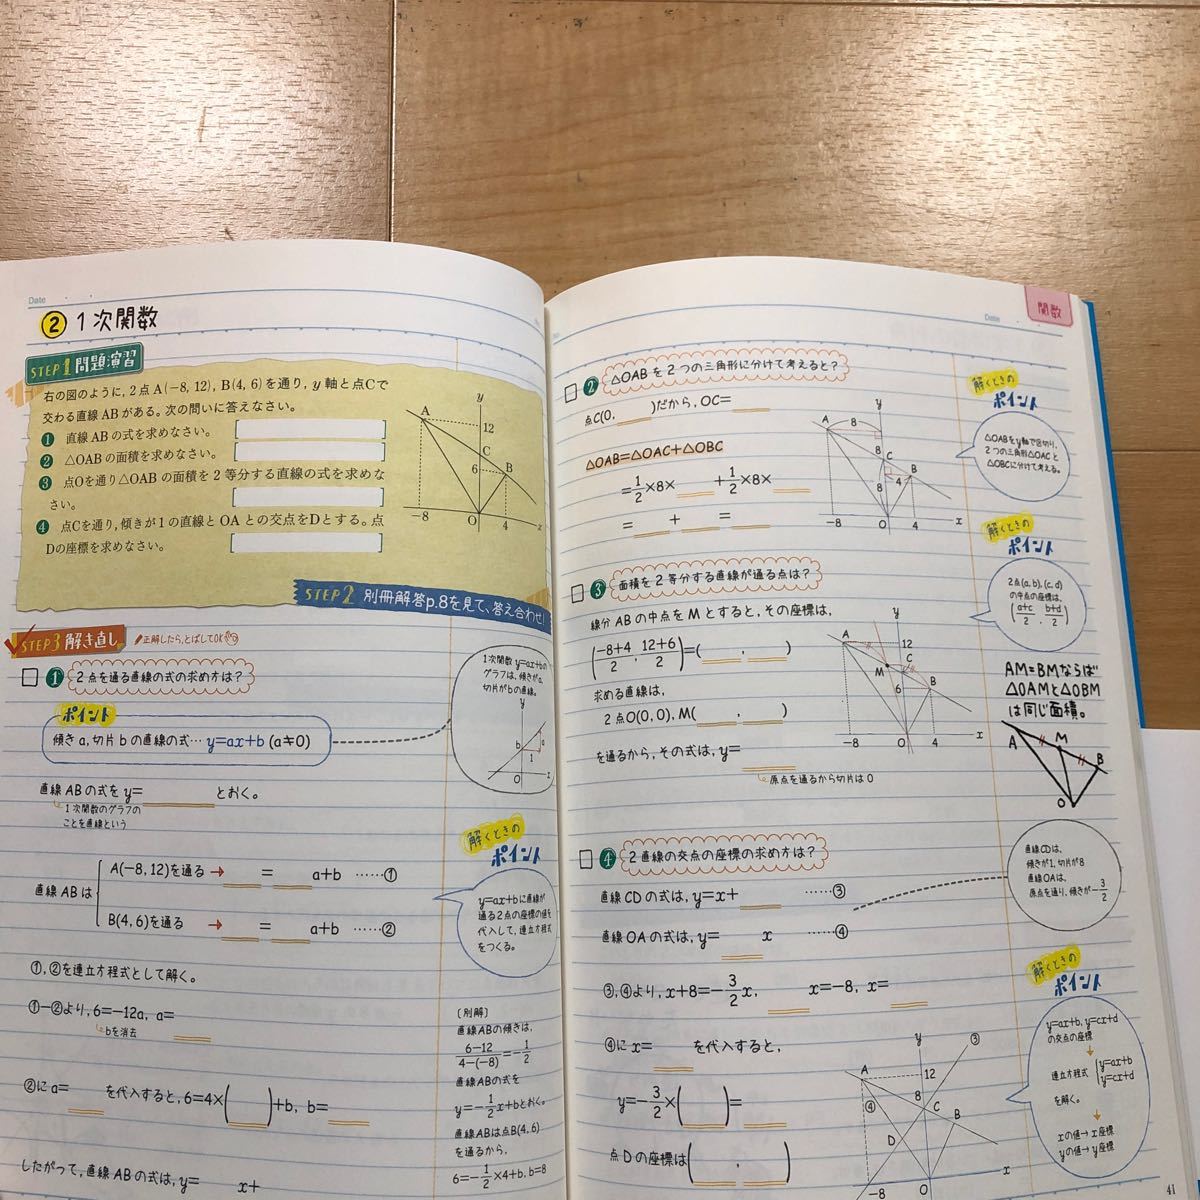 Date
② 1次関数
STEP1 問題演習
右の図のように, 2点A(−8, 12), B(4, 6)を通り, y軸と点Cで
交わる直線ABがある。次の問いに答えなさい。
❶ 直線ABの式を求めなさい。
❷ △OABの面積を求めなさい。
❸ 点Oを通り△OABの面積を2等分する直線の式を求めな
さい。
❹ 点Cを通り, 傾きが1の直線とOAとの交点をDとする。点
Dの座標を求めなさい。
y
A
12
C
6
B
−8
O
4
x
STEP2 別冊解答p.8を見て、答え合わせ!
STEP3 解き直し
正解したら、とばしてOK
❶ 2点を通る直線の式の求め方は?
ポイント
傾きa, 切片bの直線の式… y=ax+b (a≠0)
1次関数y=ax+bの
グラフは, 傾きがa,
切片がbの直線。
y
b
1
a
O
x
直線ABの式をy= とおく。
1次関数のグラフの
ことを直線という
解くときの
ポイント
y=ax+bに直線が
通る2点の座標の値を
代入して, 連立方程式
をつくる。
直線ABは
A(−8, 12)を通る → = a+b ……①
B(4, 6)を通る → = a+b ……②
①, ②を連立方程式として解く。
①−②より, 6=−12a, a=
bを消去
②にa= を代入すると, 6=4×( )+b, b=
したがって, 直線ABの式は, y= x+
〔別解〕
直線ABの傾きは,
6−12/4−(−8)=−1/2
直線ABの式を
y=−1/2x+bとおく。
直線ABは点B(4, 6)
を通るから,
6=−1/2×4+b, b=8
関数
Date
❷ △OABを2つの三角形に分けて考えると?
点C(0, )だから, OC=
△OAB=△OAC+△OBC
=1/2×8× +1/2×8×
= + =
y
A
8
8
C
4
B
8
−8
O
4
x
解くときの
ポイント
△OABをy軸で区切り,
2つの三角形△OACと
△OBCに分けて考える。
❸ 面積を2等分する直線が通る点は?
線分ABの中点をMとすると, その座標は,
(−8+4/2, 12+6/2)=( , )
求める直線は,
2点O(0, 0), M( , )
を通るから, その式は, y=
原点を通るから切片は0
y
A
12
C
M
6
B
−8
O
4
x
解くときの
ポイント
2点(a, b), (c, d)
の中点の座標は,
(a+c/2, b+d/2)
AM=BMならば
△OAMと△OBM
は同じ面積。
A
M
B
O
❹ 2直線の交点の座標の求め方は?
直線CDの式は, y=x+ ……③
直線OAの式は, y= x ……④
③, ④より, x+8=−3/2x, x=−8, x=
④にx= を代入すると,
y=−3/2×( )=
点Dの座標は( , )
直線CDは,
傾きが1, 切片が8
直線OAは,
原点を通り, 傾きが−3/2
y
③
A
12
8
C
④
B
D
−8
O
x
解くときの
ポイント
y=ax+b, y=cx+d
の交点の座標
↓
連立方程式 {y=ax+b
y=cx+d
を解く。
↓
xの値→x座標
yの値→y座標
41